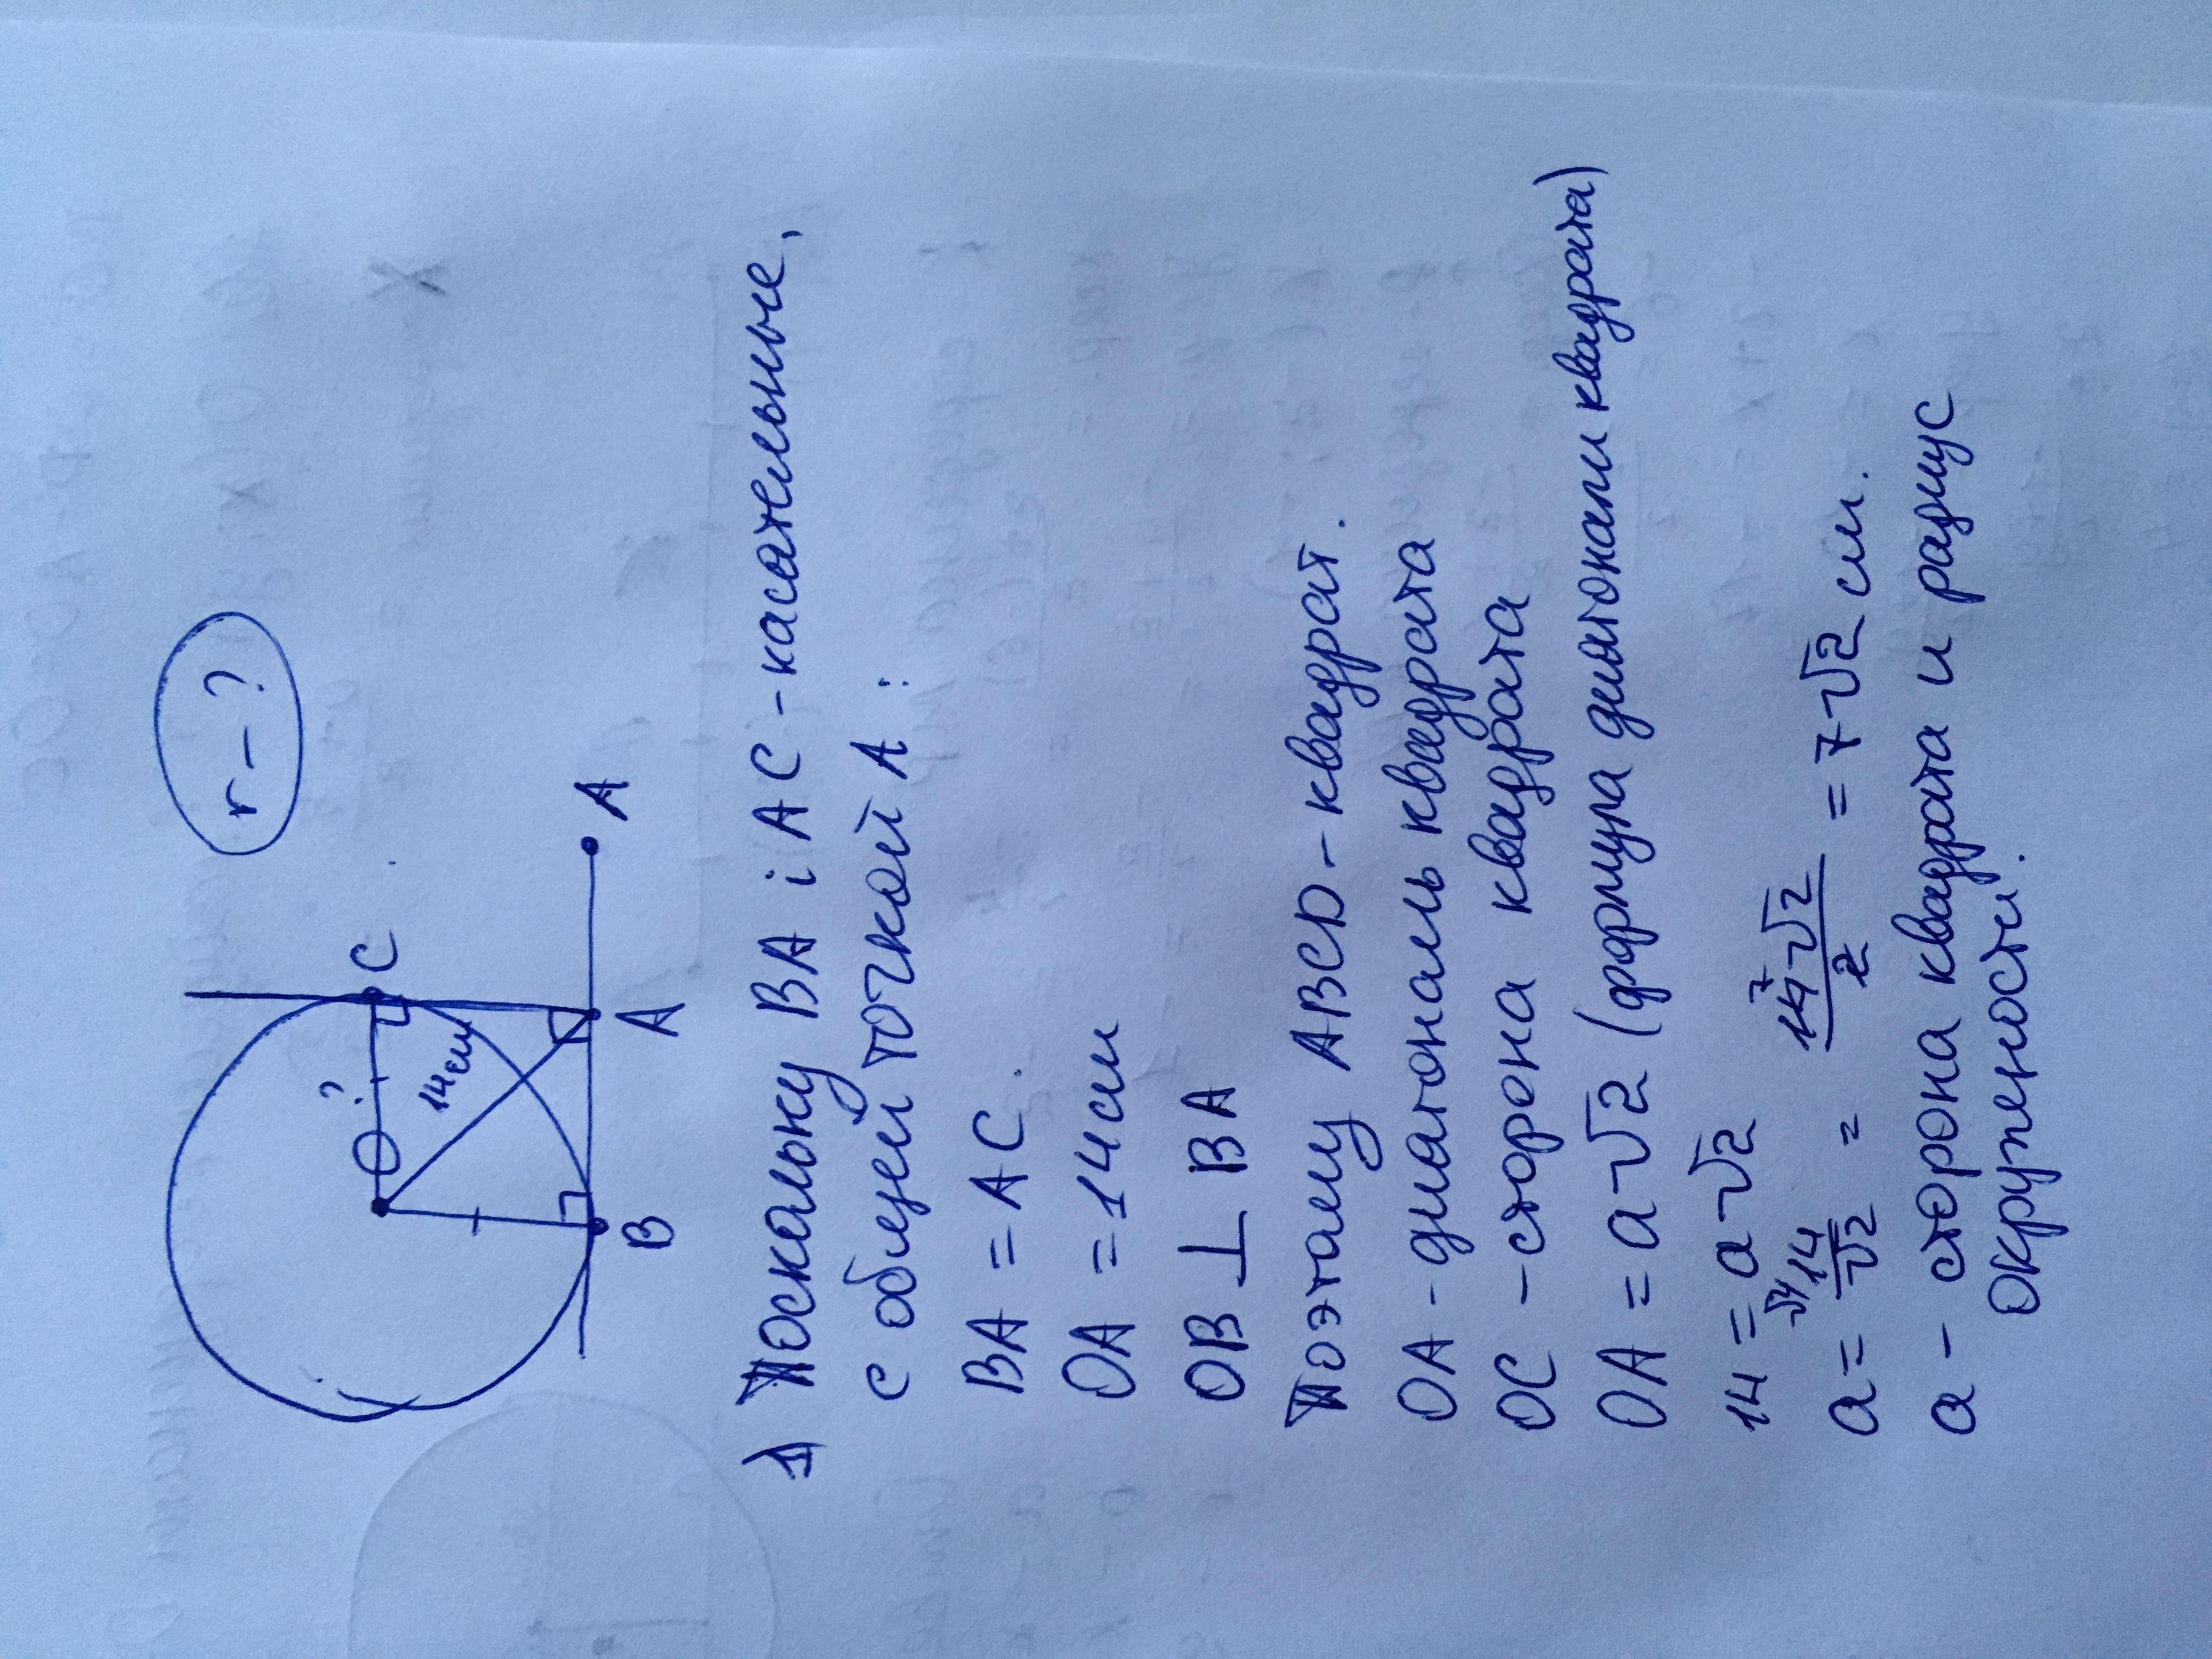 r - ?
O
?
C
14см
B
A
A
1) Поскольку BA i AC - касательные,
с общей точкой A:
BA = AC.
OA = 14см
OB ⊥ BA
Поэтому ABCD - квадрат.
OA - диагональ квадрата
OC - сторона квадрата
OA = a√2 (формула диагонали квадрата)
14 = a√2
a = √2/ 14/√2 = 14√2/2 = 7√2 см.
a - сторона квадрата и радиус
окружности.